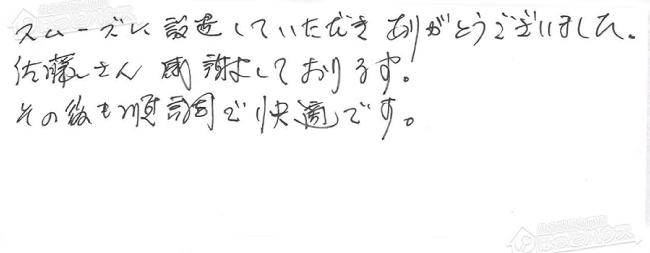 スムーズに設置していただきありがとうございました。
佐藤さん感謝しております。
その後も順調で快適です。